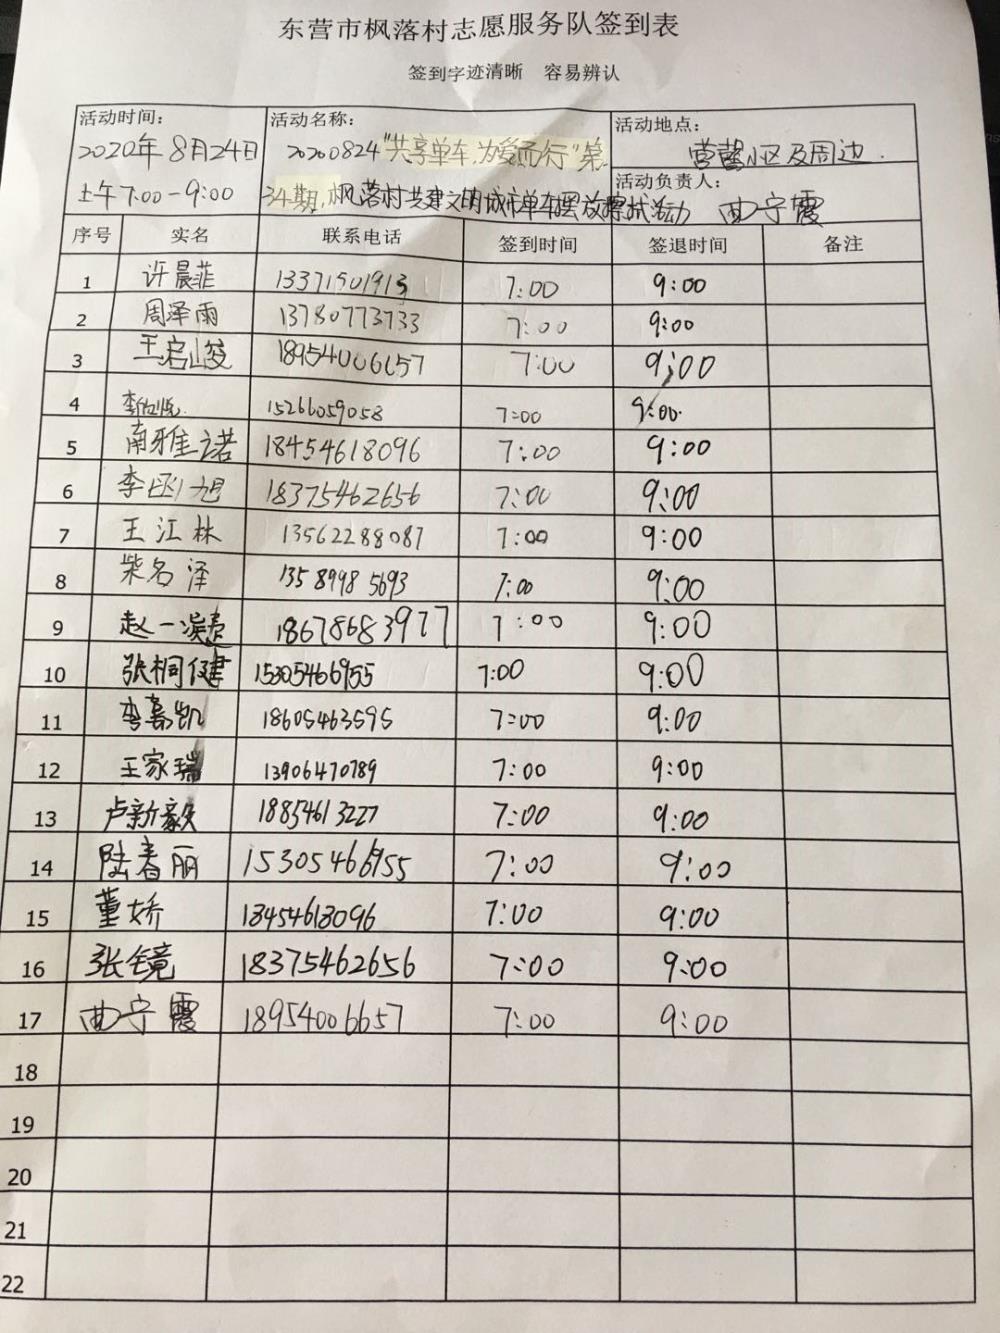 东营市枫落村志愿服务队签到表
签到字迹清晰 容易辨认
活动时间： 活动名称： 活动地点：
2020年8月24日 20200824"共享单车,为爱而行"第 营馨小区及周边.
上午7:00-9:00 34期,枫落村共建文明城市单车摆放擦拭活动 活动负责人： 曲宁霞
序号 实名 联系电话 签到时间 签退时间 备注
1 许晨菲 13371501913 7:00 9:00
2 周泽雨 13780773733 7:00 9:00
3 王启 18954006657 7:00 9:00
4 李 15266059058 7:00 9:00
5 南雅诺 18454618096 7:00 9:00
6 李函旭 18375462656 7:00 9:00
7 王江林 13562288087 7:00 9:00
8 柴名泽 13589985693 7:00 9:00
9 赵一 18678683977 7:00 9:00
10 张桐健 15305466955 7:00 9:00
11 李嘉凯 18605463595 7:00 9:00
12 王家瑞 13906470789 7:00 9:00
13 卢新毅 18854613227 7:00 9:00
14 陆春丽 15305466955 7:00 9:00
15 董娇 18454618096 7:00 9:00
16 张镜 18375462656 7:00 9:00
17 曲宁霞 18954006657 7:00 9:00
18
19
20
21
22